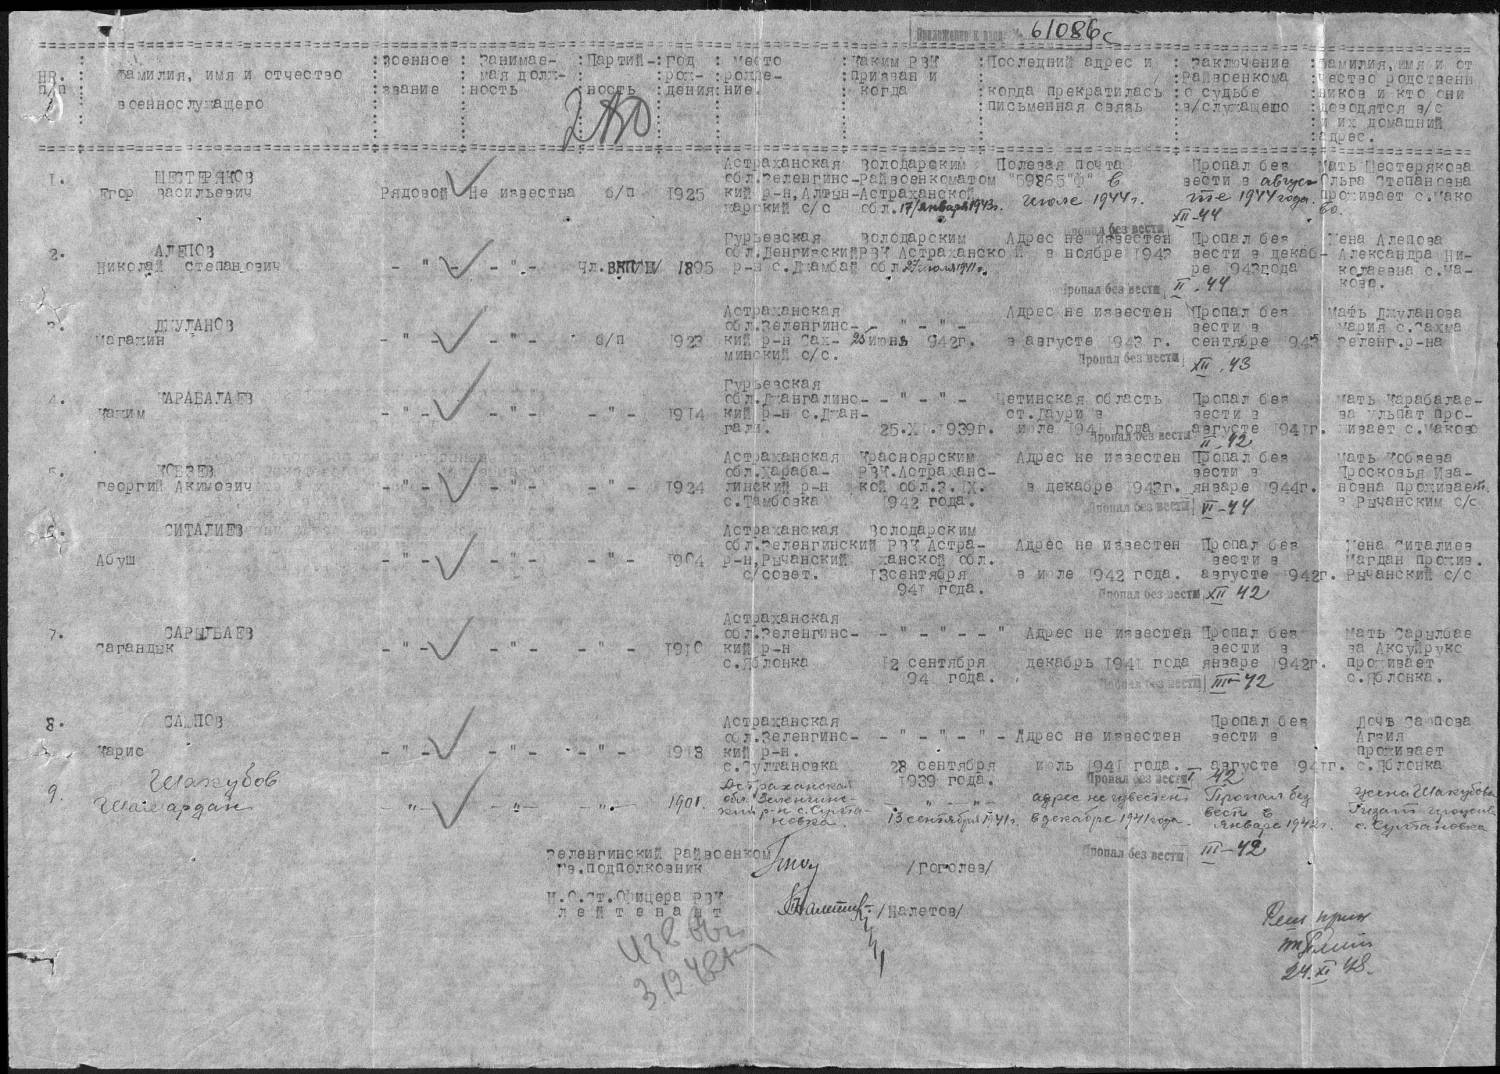 Приложение к вход. № 61086с
НР. п/п
Фамилия, имя и отчество военнослужащего
Военное звание
Занимаемая должность
Партийность
Год рождения
Место рождения.
Каким РВК призван и когда
Последний адрес и когда прекратилась письменная связь
Заключение Райвоенкома о судьбе в/служащего
Фамилия, имя и отчество родственников и кто они доводятся в/с и их домашний адрес.
1. ШЕСТЕРЯКОВ
Егор Васильевич
Рядовой Не известна б/п 1925
Астраханская
обл.Зеленгинс-
кий р-н, Алтын-
жарский с/с
Володарским
Райвоенкоматом
Астраханской
обл. 17/января 1943г.
Полевая почта
"59865"Ф" в
июле 1944г.
Пропал без
вести в августе
1944 года.
XII-44
Мать Шестерякова
Ольга Степановна
Проживает с.Мако
во.
Пропал без вести
2. АЛЕПОВ
Николай Степанович
- " - - " - чл.ВКП/б/ 1895
Гурьевская
обл.Денгизский
р-н с.Джамбай
Володарским
РВК Астраханско
й обл. 27 июля 1941г.
Адрес не известен
в ноябре 1943
Пропал без
вести в декаб-
ре 1943года
Пропал без вести II.44
Жена Алепова
Александра Ни-
колаевна с.Ма-
ково.
3. ДЖУЛАНОВ
Магажин
- " - - " - б/п 1923
Астраханская
обл.Зеленгинс-
кий р-н Сах-
минский с/с.
- " - " -
25 июня 942г.
Адрес не известен
в августе 1943 г.
Пропал без
вести в
сентябре 1943
Пропал без вести XII.43
Мать Джуланова
Мария с.Сахма
Зеленг.р-на
4. КАРАБАЛАЕВ
Кажим
- " - - " - - " - 1914
Гурьевская
обл.Джангалинс-
кий р-н с.Джан-
гали.
- " - " -
25.XI.1939г.
Читинская область
ст.Даури в
июле 1941 года
Пропал без
вести в
августе 1941г.
Пропал без вести II.42
Мать Карабалае-
ва Ульпат про-
живает с.Маково
5. КОБЗЕВ
Георгий Акимович
- " - - " - - " - 1924
Астраханская
обл.Хараба-
линский р-н
с.Тамбовка
Красноярским
РВК.Астраханс-
кой обл.3.IX.
1942 года.
Адрес не известен
в декабре 1943г.
Пропал без
вести в
январе 1944г.
Пропал без вести VI-44
Мать Кобзева
Просковья Ива-
новна проживает
в Рычанским с/с
6. СИТАЛИЕВ
Абуш
- " - - " - - " - 1904
Астраханская
обл.Зеленгинский
р-н, Рычанский
с/совет.
Володарским
РВК Астра-
ханской обл.
13сентября
941 года.
Адрес не известен
в июле 1942 года.
Пропал без
вести в
августе 1942г.
Пропал без вести XII 42
Жена Ситалиев
Магдан прожив.
Рычанский с/с
7. САРЫЛБАЕВ
Сагандык
- " - - " - - " - 1910
Астраханская
обл.Зеленгинс-
кий р-н
с.Яблонка
- " - " - - "
12 сентября
94 года.
Адрес не известен
декабрь 1941 года
Пропал без
вести в
январе 1942г.
Пропал без вести III-42
Мать Сарылбае
ва Аксуйрукс
проживает
с.Яблонка.
8. САИПОВ
Карис
- " - - " - - " - 1913
Астраханская
обл.Зеленгинс-
кий р-н.
с.Султановка
- " - " - " -
28 сентября
1939 года.
Адрес не известен
июль 1941 года.
Пропал без
вести в
августе 1941г.
Пропал без вести I 42
Дочь Саипова
Агзия
проживает
с.Яблонка
9 Шакубов
Шамардан
- " - - " - - " - 1901.
Астраханская
обл. Зеленгинс-
кий р-н с. Султа-
новка.
- " - " -
13 сентября 1941г.
адрес не известен
в декабре 1941 года.
Пропал без
вести в
январе 1942г.
Пропал без вести III-42
жена Шакубова
с. Султановка
Зеленгинский Райвоенком
Гв.подполковник /Гоголев/
И.О.Ст.Офицера РВК
лейтенант /Налетов/
24.XI 48.